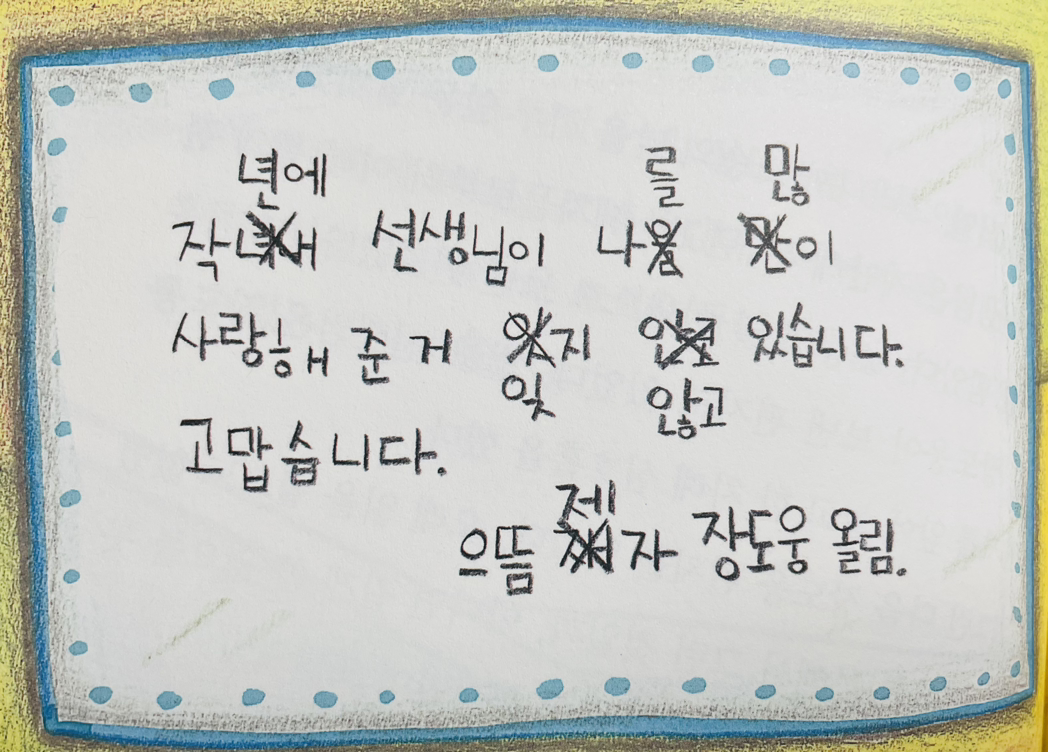 년에 를 많
작 선생님이 나 이
사랑해 준 거 지 있습니다.
잊 않고
고맙습니다.
제
으뜸 자 장도웅 올림.